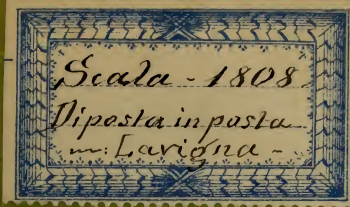 Scala - 1808.
Diposta in posta
m: Lavigna -